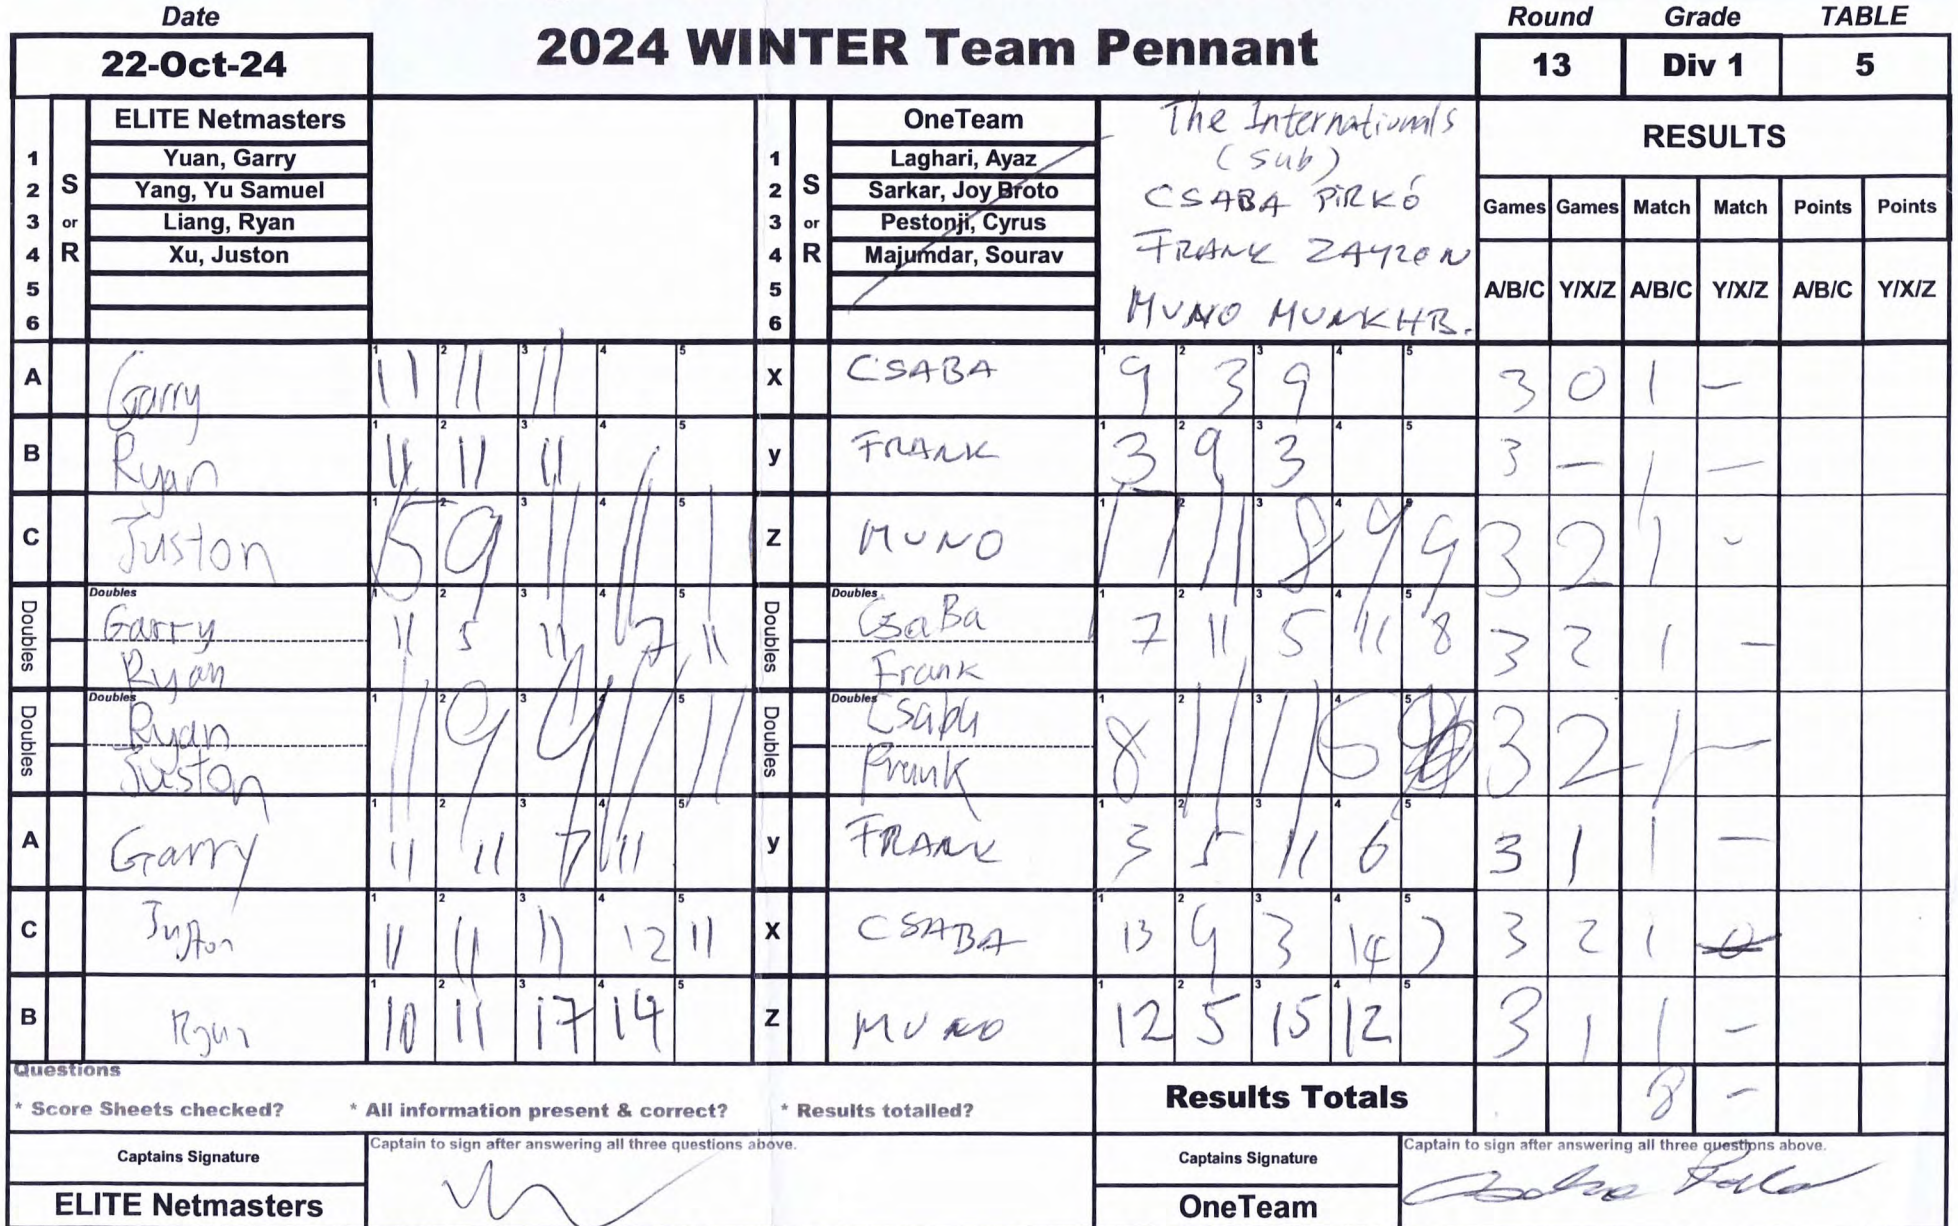 Date
22-Oct-24
2024 WINTER Team Pennant
Round Grade TABLE
13 Div 1 5
ELITE Netmasters
1 Yuan, Garry
2 S Yang, Yu Samuel
3 or Liang, Ryan
4 R Xu, Juston
5
6
OneTeam
1 Laghari, Ayaz
2 S Sarkar, Joy Broto
3 or Pestonji, Cyrus
4 R Majumdar, Sourav
5
6
The Internationals
(sub)
CSABA PIRKÓ
FRANK ZAYZON
MUNO MUNKHB.
RESULTS
Games Games Match Match Points Points
A/B/C Y/X/Z A/B/C Y/X/Z A/B/C Y/X/Z
A Garry 11 11 11 X CSABA 9 3 9 3 0 1 -
B Ryan 11 11 11 y FRANK 3 9 3 3 - 1 -
C Juston 5 9 11 11 11 Z MUNO 11 11 8 9 9 3 2 1 -
Doubles Garry Ryan 11 5 11 7 11 Doubles CsaBa Frank 7 11 5 11 8 3 2 1 -
Doubles Ryan Juston 11 9 9 11 11 Doubles Csaba Frank 8 11 11 5 9 3 2 1 -
A Garry 11 11 7 11 y FRANK 3 5 11 6 3 1 1 -
C Juston 11 11 11 12 11 X CSABA 13 9 3 14 7 3 2 1 0
B Ryan 10 11 17 14 Z MUNO 12 5 15 12 3 1 1 -
Questions
* Score Sheets checked? * All information present & correct? * Results totalled?
Results Totals 8 -
Captains Signature
Captain to sign after answering all three questions above.
ELITE Netmasters
Captains Signature
Captain to sign after answering all three questions above.
OneTeam